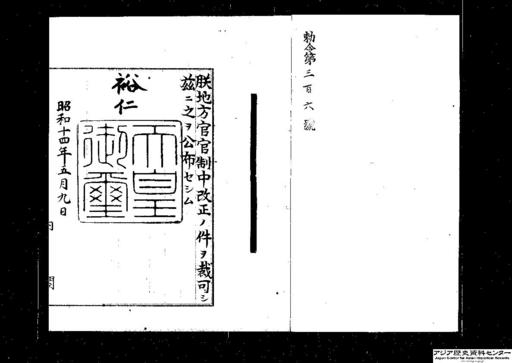 勅令第三百六號
朕地方官官制中改正ノ件ヲ裁可シ
茲ニ之ヲ公布セシム
裕仁
天皇
御璽
昭和十四年五月九日
内 閣
アジア歴史資料センター
Japan Center for Asian Historical Records